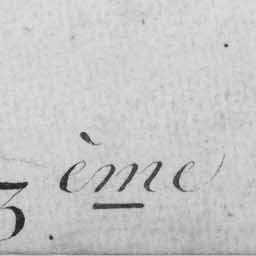 3.ème